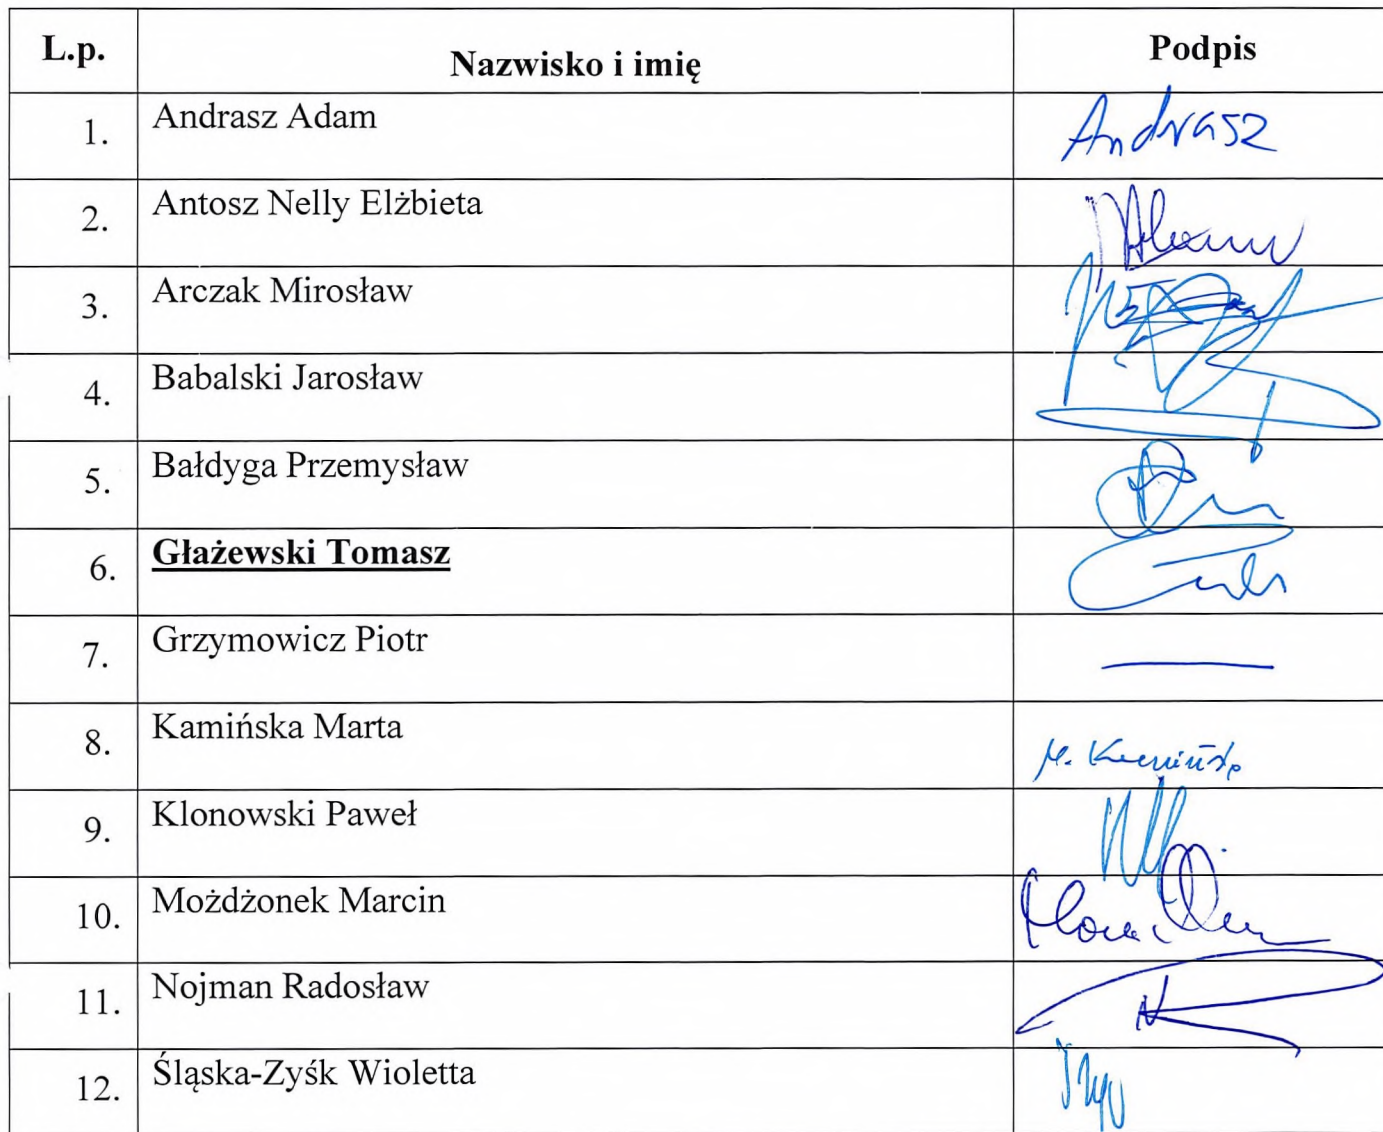 L.p. Nazwisko i imię Podpis
1. Andrasz Adam Andrasz
2. Antosz Nelly Elżbieta
3. Arczak Mirosław
4. Babalski Jarosław
5. Bałdyga Przemysław
6. Głażewski Tomasz
7. Grzymowicz Piotr —
8. Kamińska Marta M. Kamińska
9. Klonowski Paweł
10. Możdżonek Marcin
11. Nojman Radosław
12. Śląska-Zyśk Wioletta